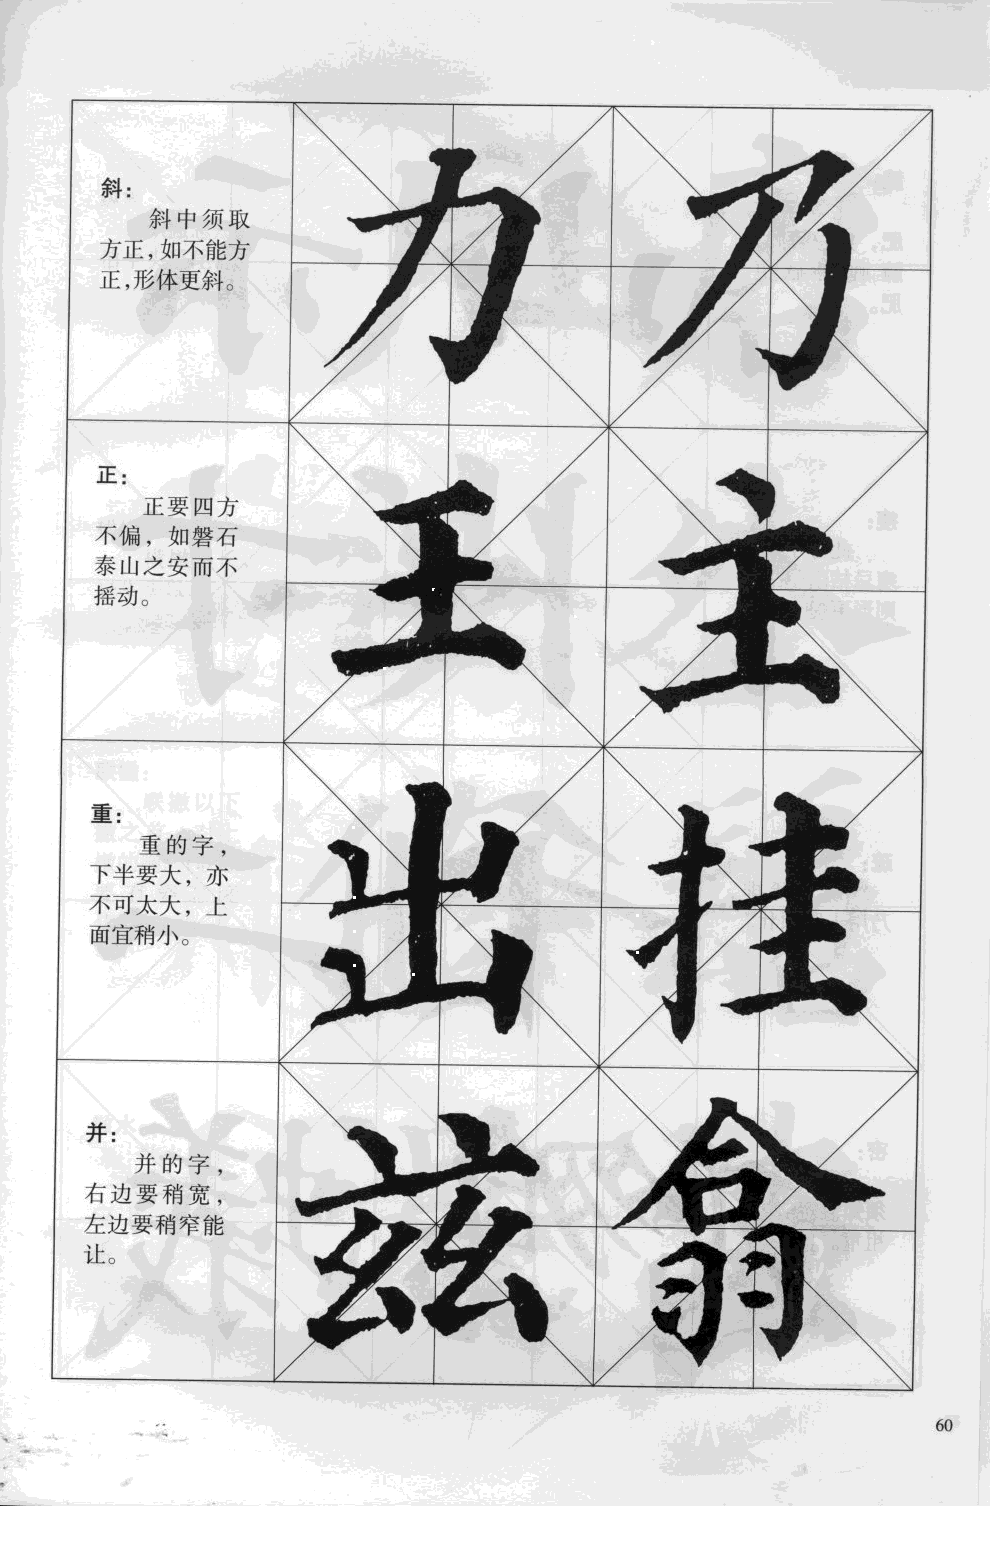 斜：
斜中须取
方正，如不能方
正，形体更斜。
力 乃
正：
正要四方
不偏，如磐石
泰山之安而不
摇动。
王 主
重：
重的字，
下半要大，亦
不可太大，上
面宜稍小。
出 挂
并：
并的字，
右边要稍宽，
左边要稍窄能
让。
兹 翕
60